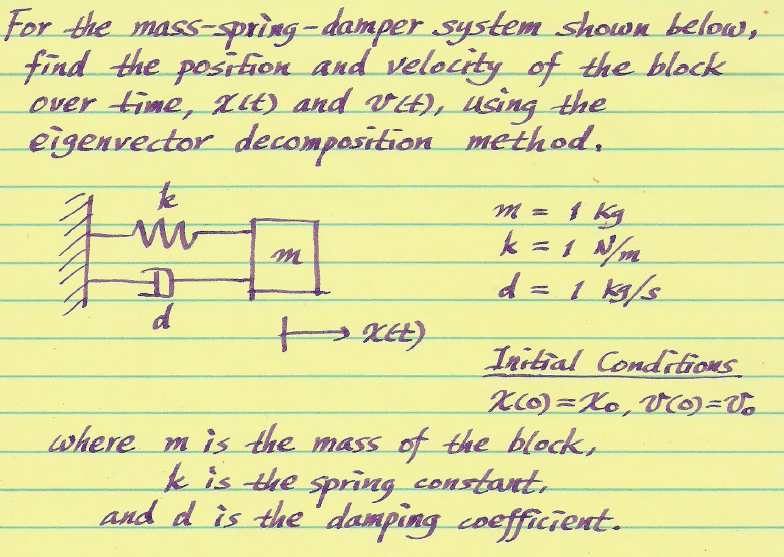 For the mass-spring-damper system shown below,
find the position and velocity of the block
over time, x(t) and v(t), using the
eigenvector decomposition method.
k
m
d
x(t)
m = 1 kg
k = 1 N/m
d = 1 kg/s
Initial Conditions
x(0) = x₀, v(0) = v₀
where m is the mass of the block,
k is the spring constant,
and d is the damping coefficient.